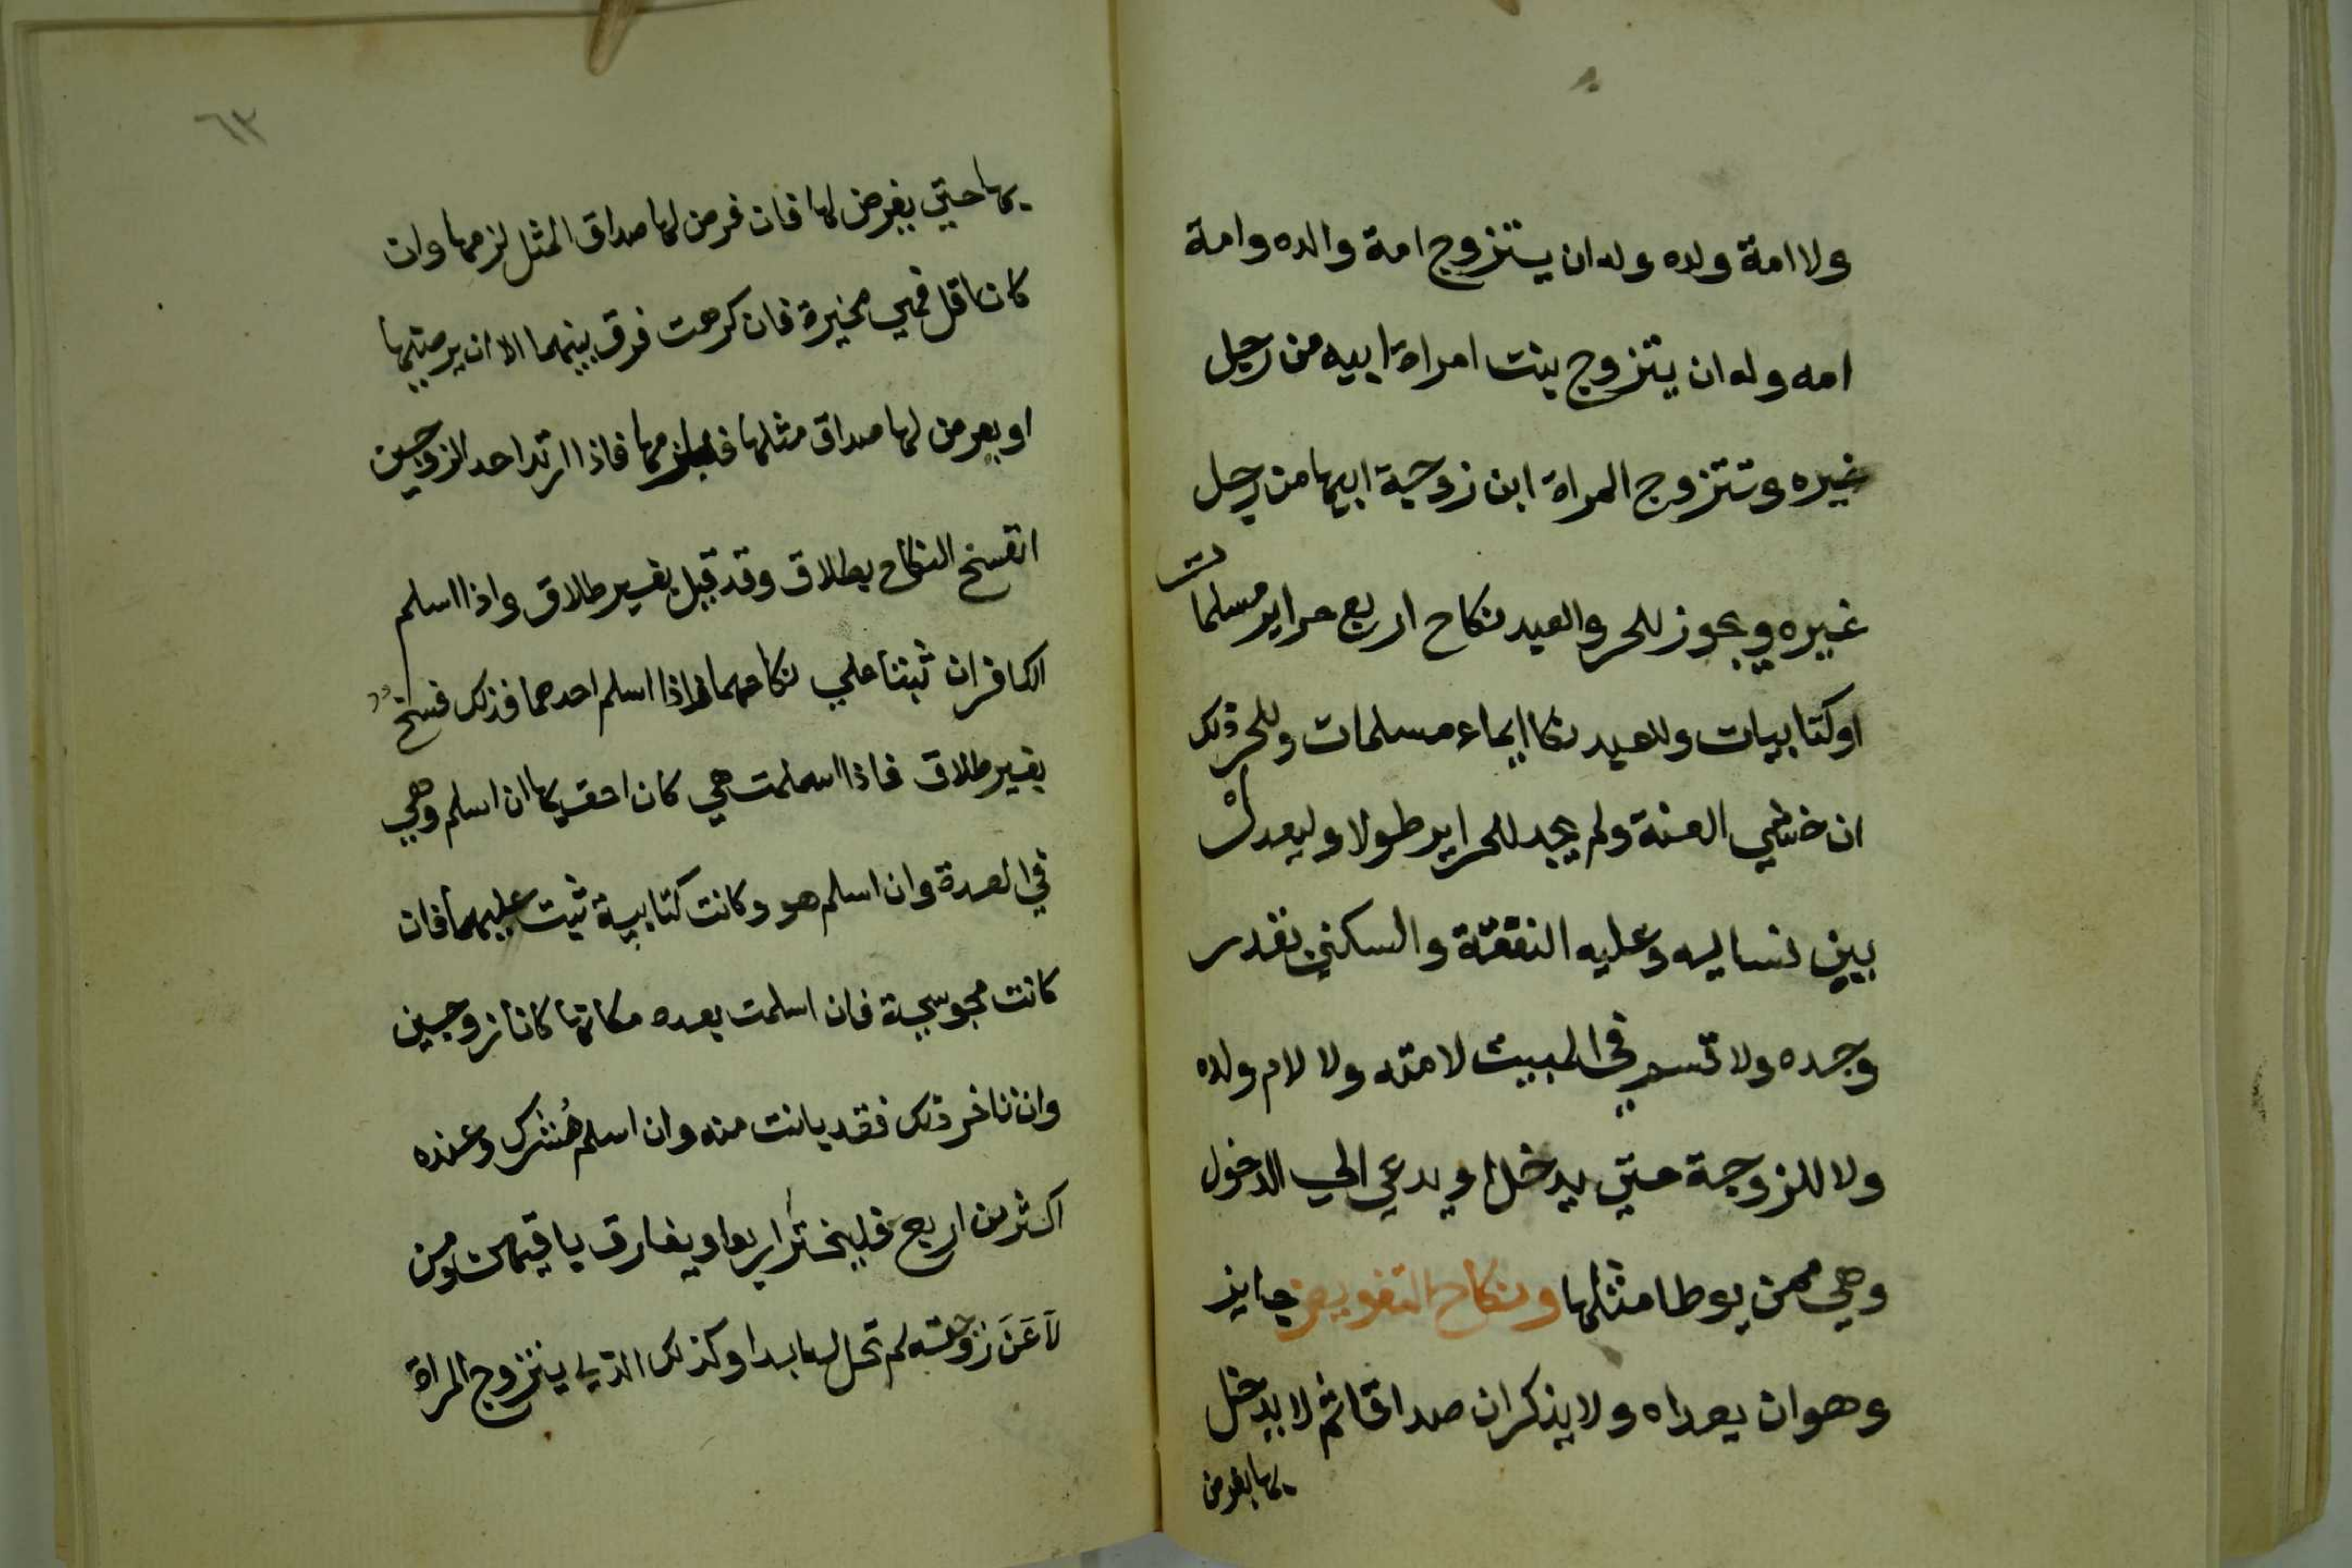 ولا امة ولده وله ان يستتزوج امة والده وامة
امه وله ان يتزوج بنت امراة ابيه من رجل
غيره وتتزوج المراة ابن زوجة ابيها من رجل
غيره ويجوز للحر والعبد نكاح اربع حراير مسلمات
او كتابيات وللعبد نكا ايماء مسلمات وللحر ذلك
ان خشي العنة ولم يجد للحراير طولا وليعدل
بين نسايه وعليه النفقة والسكني بقدر
وجده ولا قسم في المبيت لامته ولا لام ولده
ولا للزوجة حتي يدخل او يدعي الي الدخول
وهي ممن يوطا مثلها ونكاح التفويض جايز
وهو ان يعداه ولا يذكران صداقا ثم لا يدخل
بها يفرض
٦٣
بها حتي يفرض لها فان فرض لها صداق المثل لزمها وان
كان اقل فهي مخيرة فان كرهت فرق بينهما الا ان يرضيها
او يعرض لها صداق مثلها فيلزمها فاذا ارتد احد الزوجين
انفسخ النكاح بطلاق وقد قيل بغير طلاق واذا اسلم
الكافران ثبتا علي نكاحهما واذا اسلم احدهما فذلك فسخ
بغير طلاق فاذا اسلمت هي كان احق بها ان اسلم وهي
في العدة وان اسلم هو وكانت كتابية ثبت عليهما فان
كانت مجوسية فان اسلمت بعده مكانها كانا زوجين
وان تاخر ذلك فقد بانت منه وان اسلم مُشرك وعنده
اكثر من اربع فليختَر اربعا ويفارق باقيهن ومن
لَاعَنَ زوجته لم تحل له ابدا وكذلك الذي يتزوج المراة